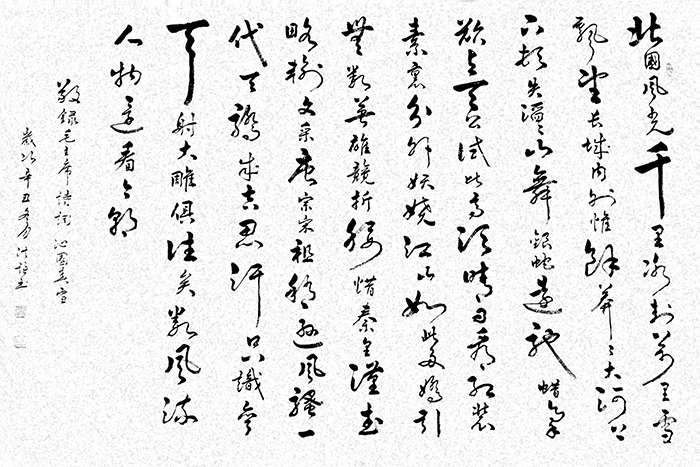 北國風光千里冰封萬里雪
飄望長城內外惟餘莽々大河上
下頓失滔々山舞銀蛇原馳蠟象
欲與天公試比高須晴日看紅裝
素裹分外妖嬈江山如此多嬌引
無數英雄競折腰惜秦皇漢武
略輸文采唐宗宋祖稍遜風騷一
代天驕成吉思汗只識彎
弓射大雕俱往矣數風流
人物還看今朝
敬錄毛主席詩詞沁園春雪
歲次辛丑